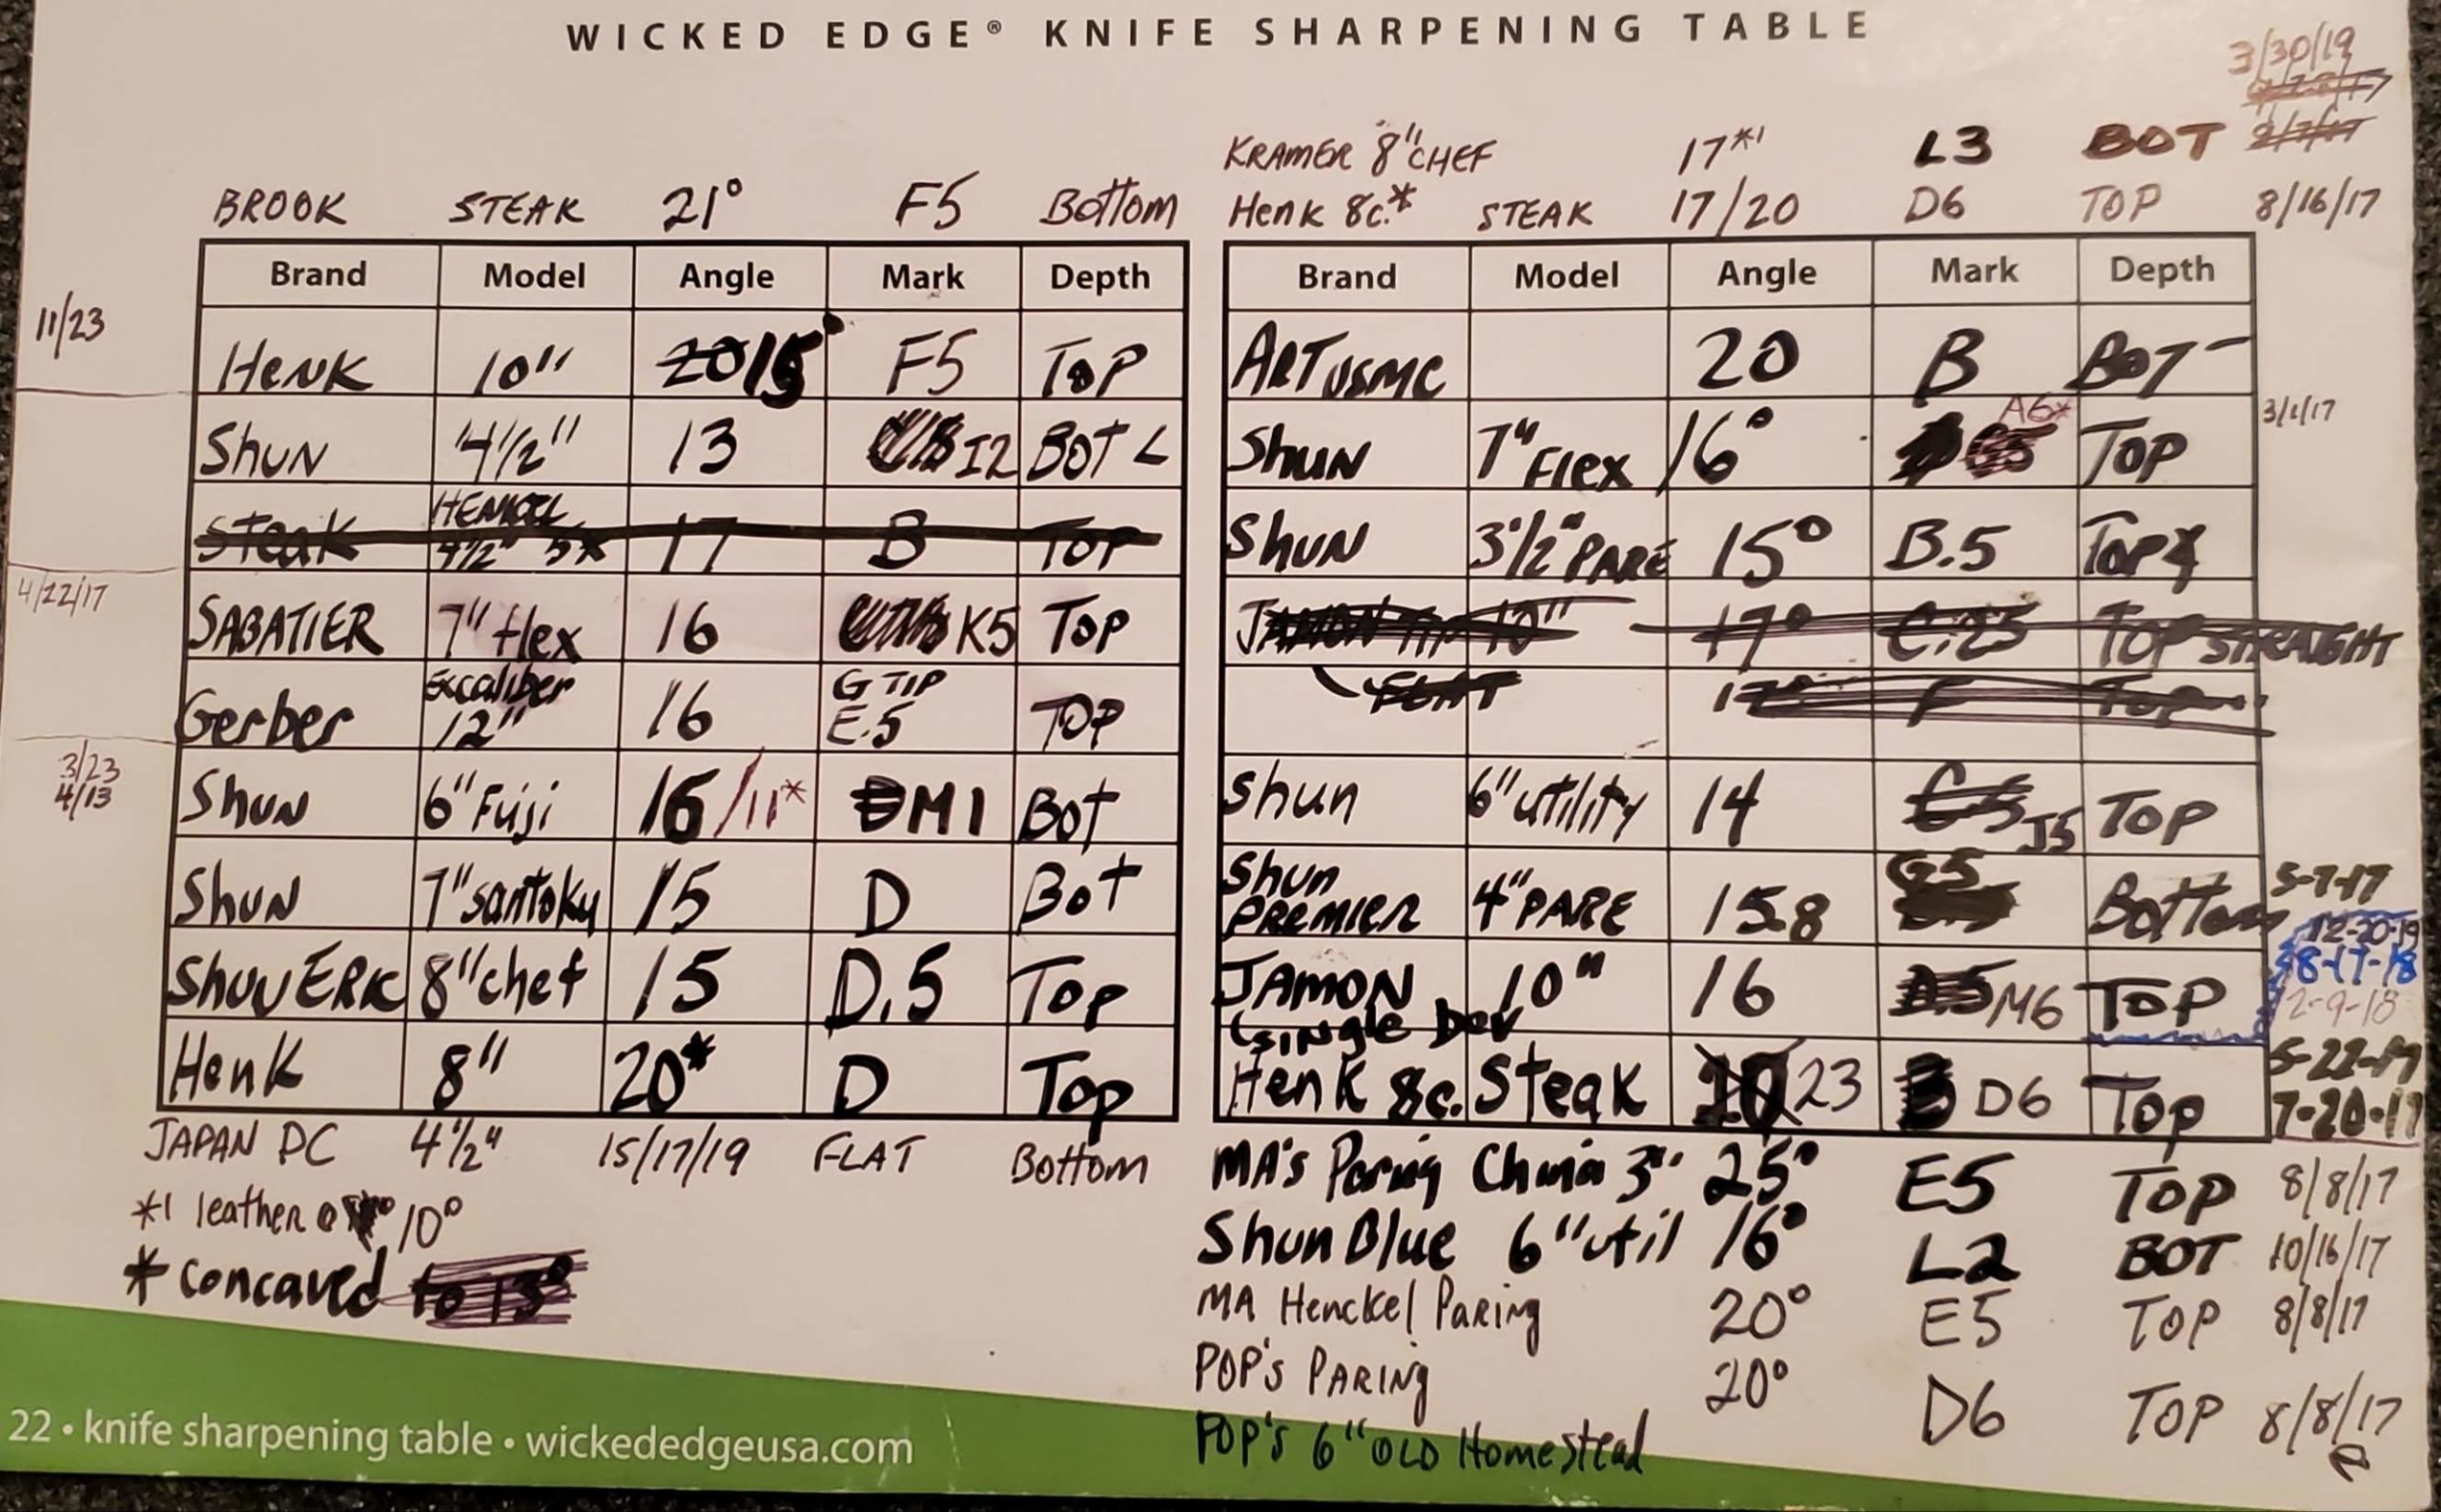 WICKED EDGE® KNIFE SHARPENING TABLE
3/30/19
KRAMER 8" CHEF 17*1 L3 BOT
BROOK STEAK 21° F5 Bottom
Henk 8c.* STEAK 17/20 D6 TOP 8/16/17
Brand Model Angle Mark Depth
11/23
Henk 10" 20 15° F5 TOP
Shun 4 1/2" 13 I2 BOT <
Steak HENKEL 4 1/2" 5x 17 B TOP
4/22/17
SABATIER 7" flex 16 K5 TOP
Gerber Excaliber 12" 16 G TIP E.5 TOP
3/23
4/13
Shun 6" Fuji 16/11* M1 Bot
Shun 7" santoku 15 D Bot
Shun ERK 8" chef 15 D.5 Top
Henk 8" 20* D Top
JAPAN DC 4 1/2" 15/17/19 FLAT Bottom
*1 leather @ 10°
* concaved to 13°
Brand Model Angle Mark Depth
ART USMC 20 B BOT
Shun 7" Flex 16° A6* TOP 3/1/17
Shun 3 1/2" PARE 15° B.5 TOP
JAMON 10" 17° C.25 TOP STRAIGHT
FLAT 17° F Top
Shun 6" utility 14 C5 J5 TOP
Shun PREMIER 4" PARE 15.8 G5 Bottom 5-7-17
12-20-19
8-17-18
2-9-18
JAMON 10" 16 M6 TOP
(single Dev
5-22-17
Henk 8c. Steak 23 B D6 Top 7-20-17
MA's Paring China 3" 25° E5 TOP 8/8/17
Shun Blue 6" util 16° L2 BOT 10/16/17
MA Henckel Paring 20° E5 TOP 8/8/17
POP's PARING 20° D6 TOP 8/8/17
POP's 6" OLD Homestead
22 • knife sharpening table • wickededgeusa.com